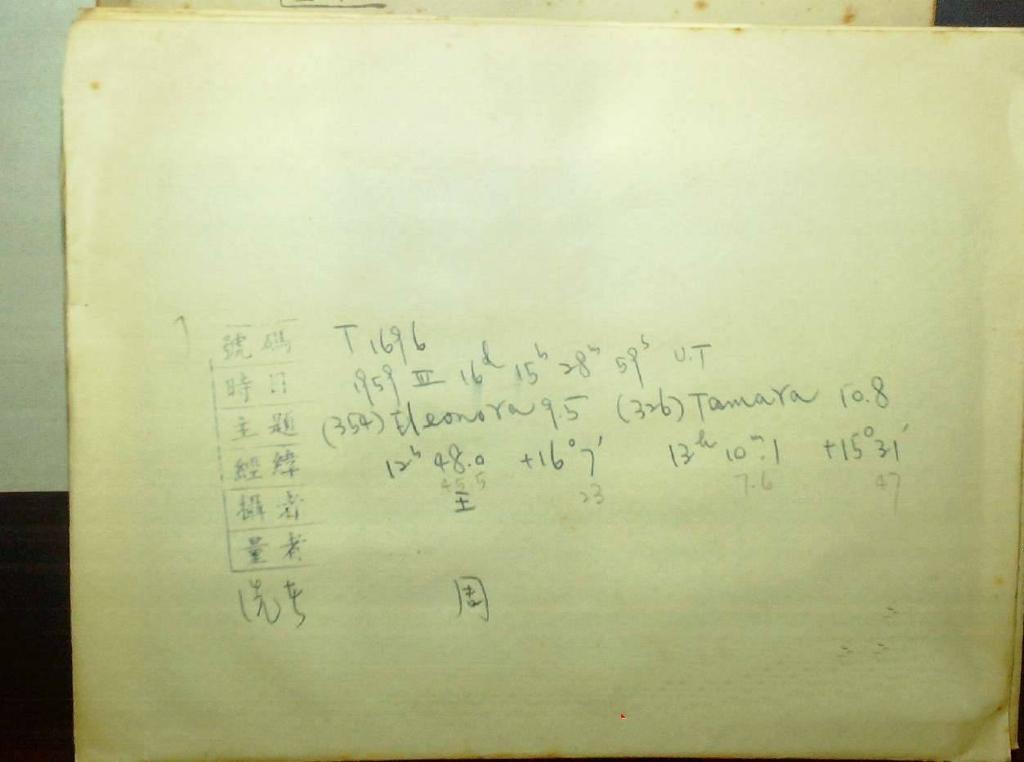 號碼 T 1696
時日 1959 III 16d 15h 28m 59s U.T
主題 (354) Eleonora 9.5 (326) Tamara 10.8
經緯 12h 48.0 +16° 7' 13h 10m.1 +15° 31'
45.5 23 7.6 47
攝者 王
量者
洗者 周